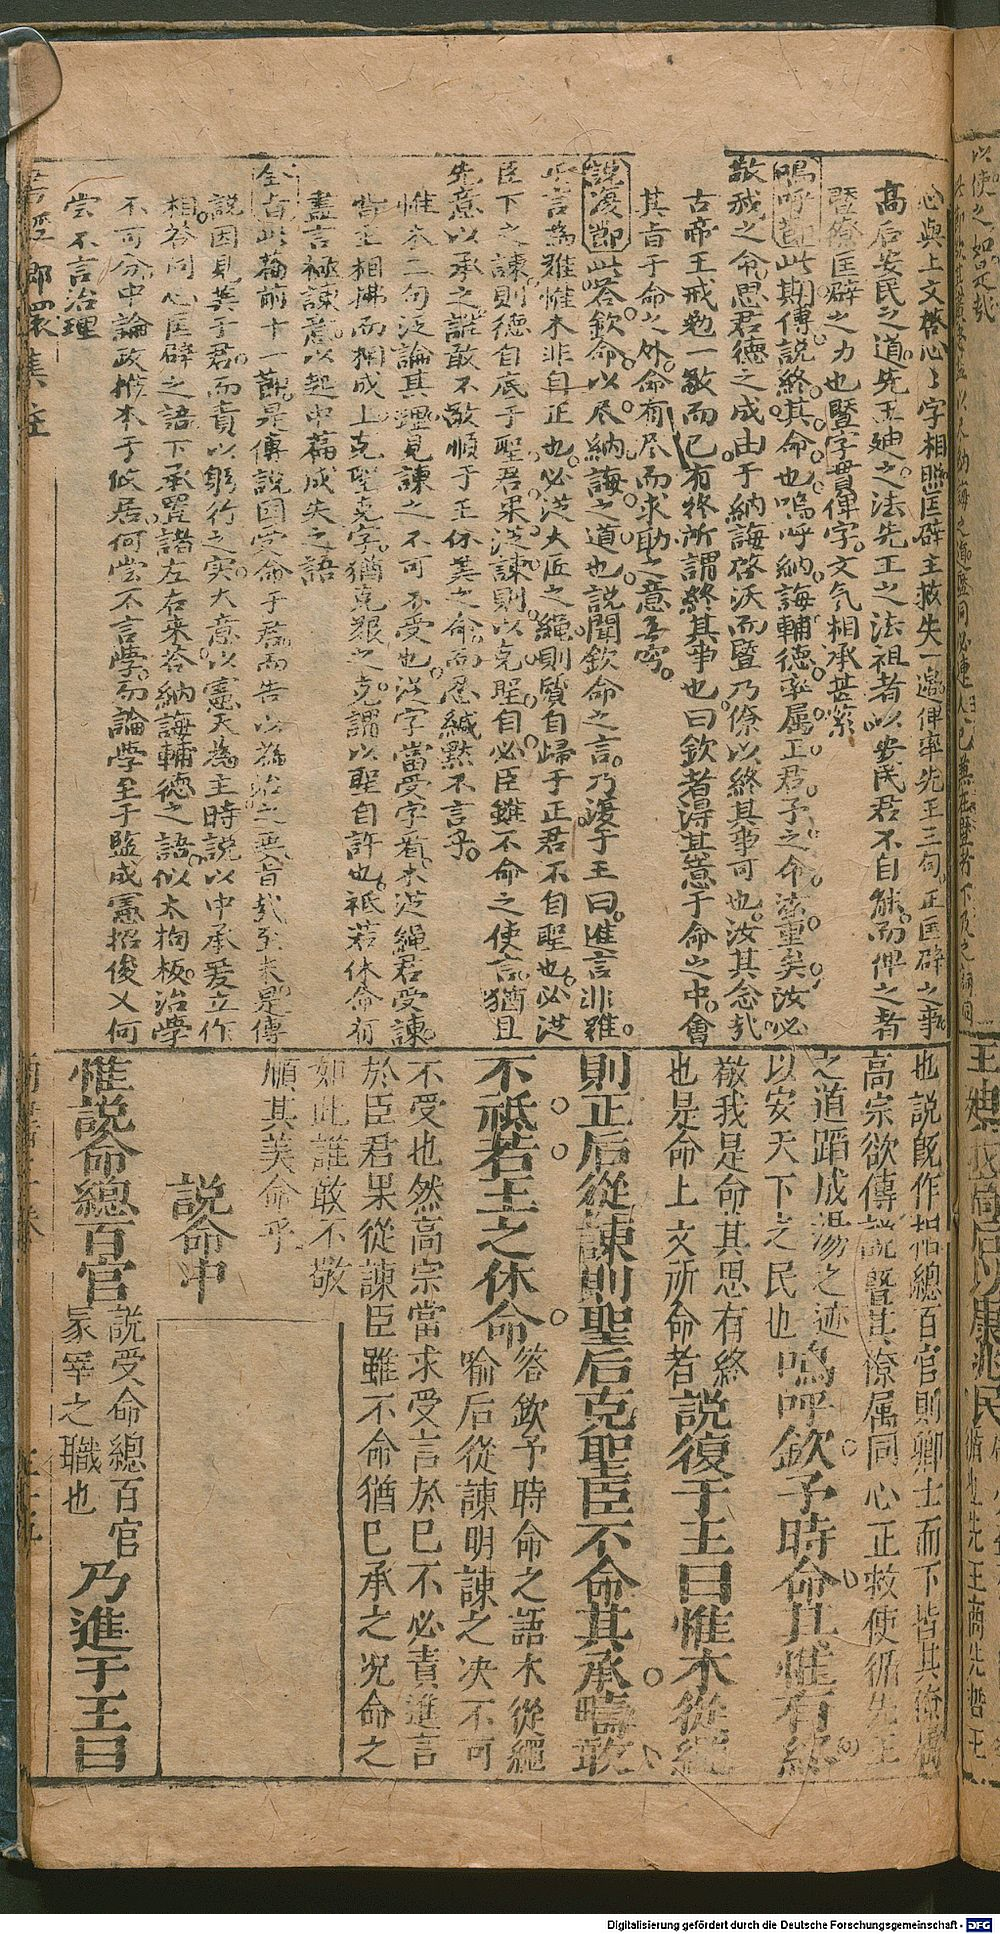 心與上文啓心心字相照匡辟主救失一邊俾率先王三句正匡辟之事
高后安民之道先王廸之法先王之法祖者以安民君不自能而俾之者
暨僚匡辟之力也暨字貫俾字文气相承甚緊
嗚呼節此期傅說終其命也嗚呼納誨輔德率属正君予之命洵重矣汝必
敬我之命思君德之成由于納誨啓沃而暨乃僚以終其事可也汝其念哉
古帝王戒勉一敬而已有終所謂終其事也曰欽者得其意于命之中會
其旨于命之外命有尽而求助之意無窮
說復節此答欽命以尽納誨之道也説聞欽命之言乃復于王曰進言非难
受言為难惟木非自正也必從大匠之绳則質自歸于正君不自聖也必從
臣下之諫則德自底于聖君果從諫則以克聖自必臣雖不命之使言猶且
先意以承之誰敢不敬順于王休美之命而忍緘默不言乎
惟木二句泛論其理見諫之不可不受也從字當受字看木從繩君受諫
皆主相拂而相成上克聖克字猶克艱之克謂以聖自許也祇若休命有
盡言極諫意以起中篇成失之語
全旨此篇前十一節是傅説因受命于君而告以為治之要旨哉至末是傅
説因見美于君而責以躬行之实大意以憲天為主時説以中承爰立作
相答同心匡辟之語下承置諸左右來答納誨輔德之語似太拘板治學
不可分中論政推本于攸居何嘗不言學乎論學至于監成憲招俊乂何
嘗不言治理
也説旣作相總百官則卿士而下皆其僚屬
高宗欲傅說暨其僚属同心正救使循先王
之道蹈成湯之迹
以安天下之民也嗚呼欽予時命其惟有終
敬我是命其思有終
也是命上文所命者說復于王曰惟木從繩
則正后從諫則聖后克聖臣不命其承疇敢
不祗若王之休命答欽予時命之語木從繩
喻后從諫明諫之决不可
不受也然高宗當求受言於已不必責進言
於臣君果從諫臣雖不命猶巳承之况命之
如此誰敢不敬
順其美命乎
説命中
惟說命總百官說受命總百官
冢宰之職也乃進于王曰
Digitalisierung gefördert durch die Deutsche Forschungsgemeinschaft - DFG